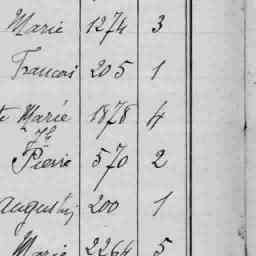 Marie 1274 3
Francois 205 1
Marie 1878 4
Pierre 570 2
Augustin 200 1
Marie 2264 5